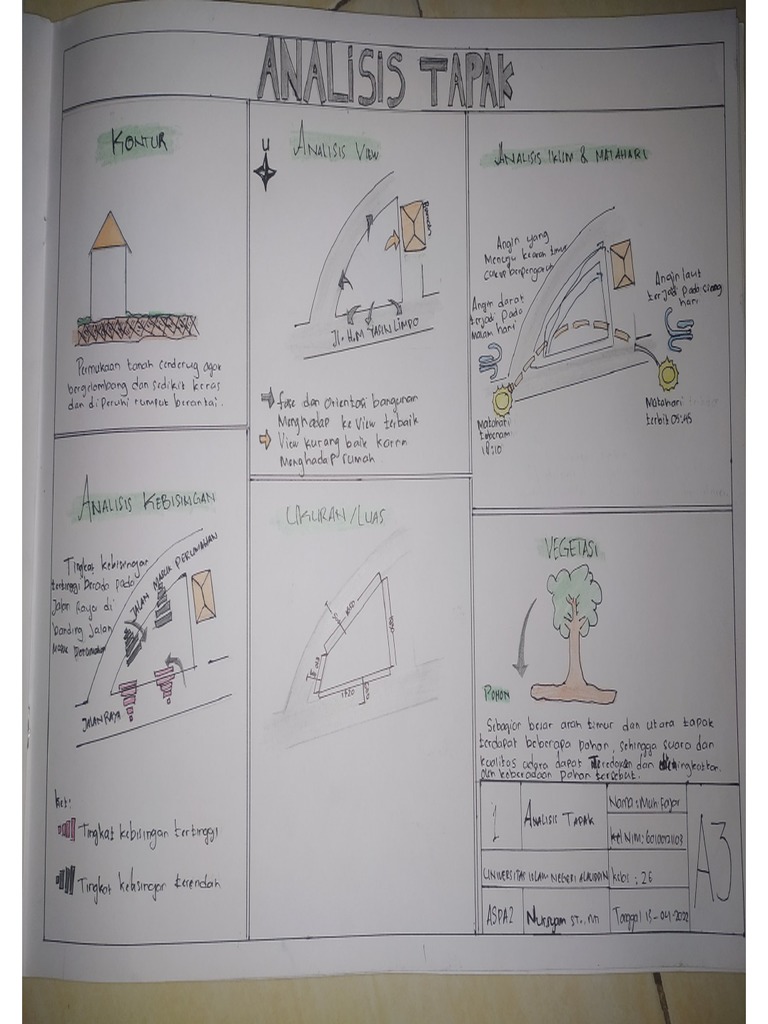 ANALISIS TAPAK
KONTUR
Permukaan tanah cenderung agar
bergelombang dan sedikit keras
dan di penuhi rumput berantai.
U
ANALISIS VIEW
Rumah
JL. H.M YASIN LIMPO
fase dan orientasi bangunan
Menghadap ke view terbaik
View kurang baik karna
menghadap rumah
ANALISIS IKLIM & MATAHARI
Angin yang
Menuju kearah timur
cukup berpengaruh
Angin darat
terjadi pada
malam hari
Angin laut
terjadi pada siang
hari
Matahari
terbenam
18:10
Matahari
terbit 05:45
ANALISIS KEBISINGAN
Tingkat kebisingan
tertinggi berada pada
Jalan Raya di
banding jalan
Masuk perumahan
JALAN MASUK PERUMAHAN
JALAN RAYA
Ket:
Tingkat kebisingan tertinggi
Tingkat kebisingan terendah
UKURAN/LUAS
VEGETASI
POHON
Sibagian besar arah timur dan utara tapak
terdapat beberapa pohon, sehingga suara dan
kualitas udara dapat Teredam dan
oleh keberadaan pohon tersebut.
1
ANALISIS TAPAK
Nama: Muh Fajar
Kel NIM: 60100121103
UNIVERSITAS ISLAM NEGERI ALAUDDIN
Kelas: 26
ASPA2
Nursyam ST.,
Tanggal 15-04-2022
A3